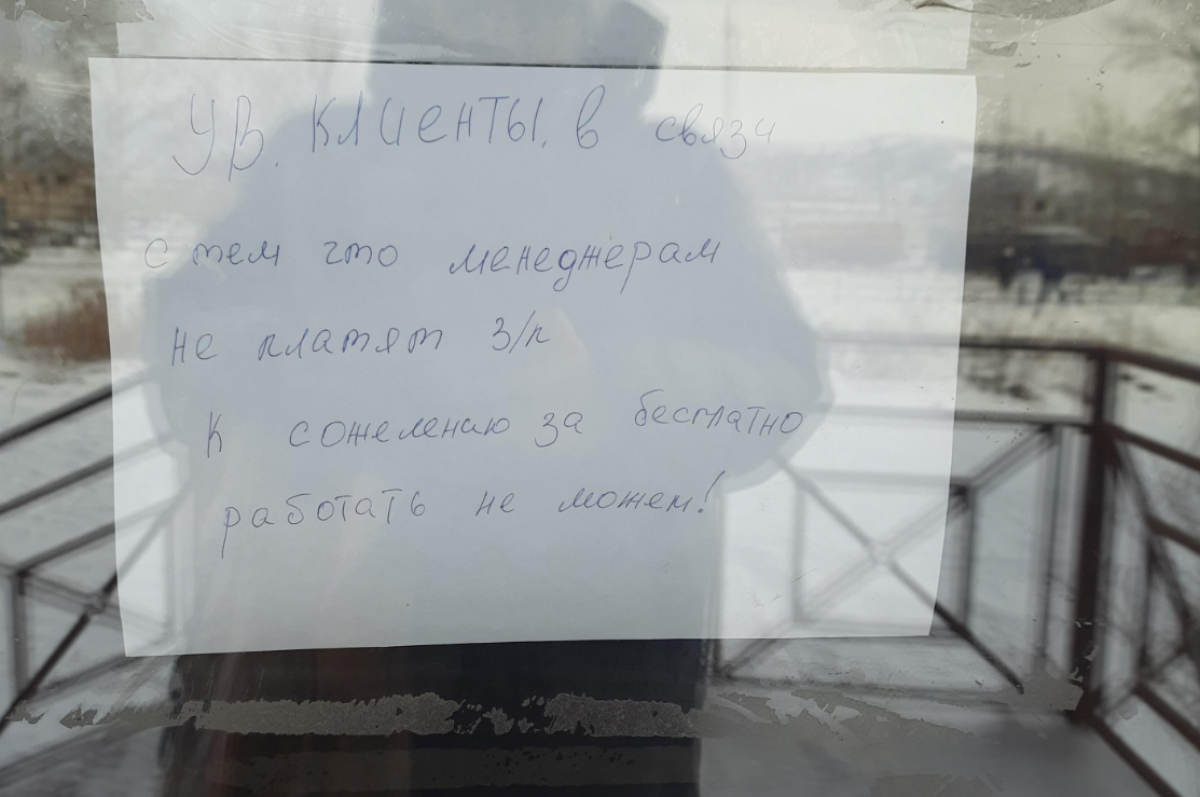 УВ. КЛИЕНТЫ, в связи
с тем что менеджерам
не платят з/п
К сожелению за бесплатно
работать не можем!